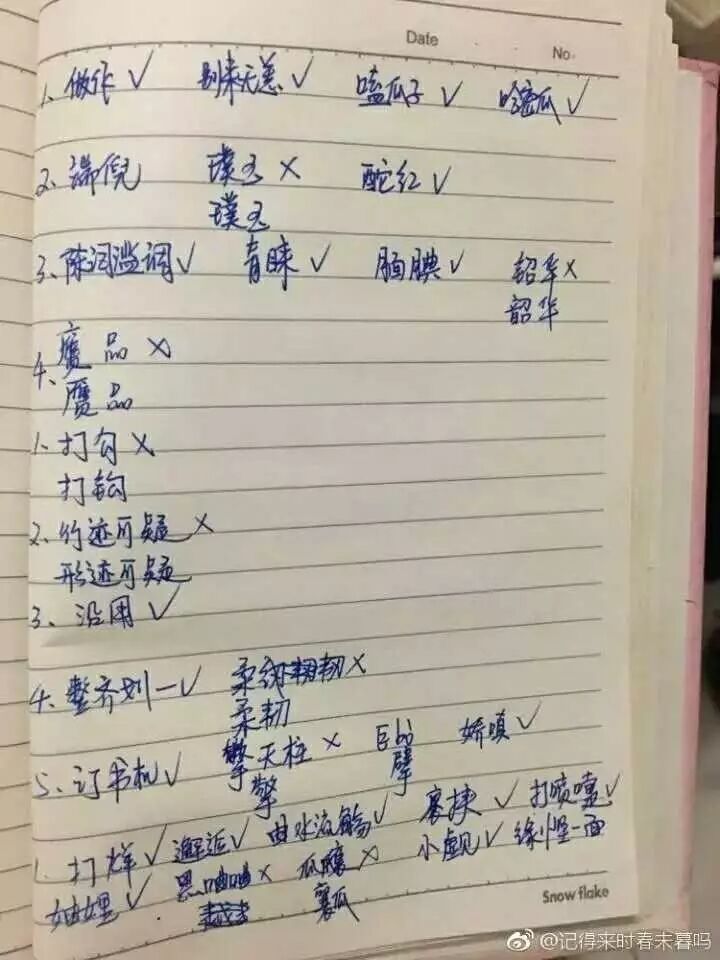 Date No.
1、做作✓ 别来无恙✓ 嗑瓜子✓ 哈密瓜✓
2、端倪 璞玉× 酡红✓
璞玉
3、陈词滥调✓ 青睐✓ 腼腆✓ 韶华×
韶华
4、赝品×
赝品
1、打勾×
打钩
2、行迹可疑×
形迹可疑
3、沿用✓
4、整齐划一✓ 柔韧×
柔韧
5、订书机✓ 擎天柱× 巨臂 娇嗔✓
擎
1、打烊✓ 邂逅✓ 曲水流觞✓ 裹挟✓ 打喷嚏✓
妯娌✓ 黑黢黢× 瓜瓤× 小觑✓ 缘悭一面
Snow flake
@记得来时春未暮吗